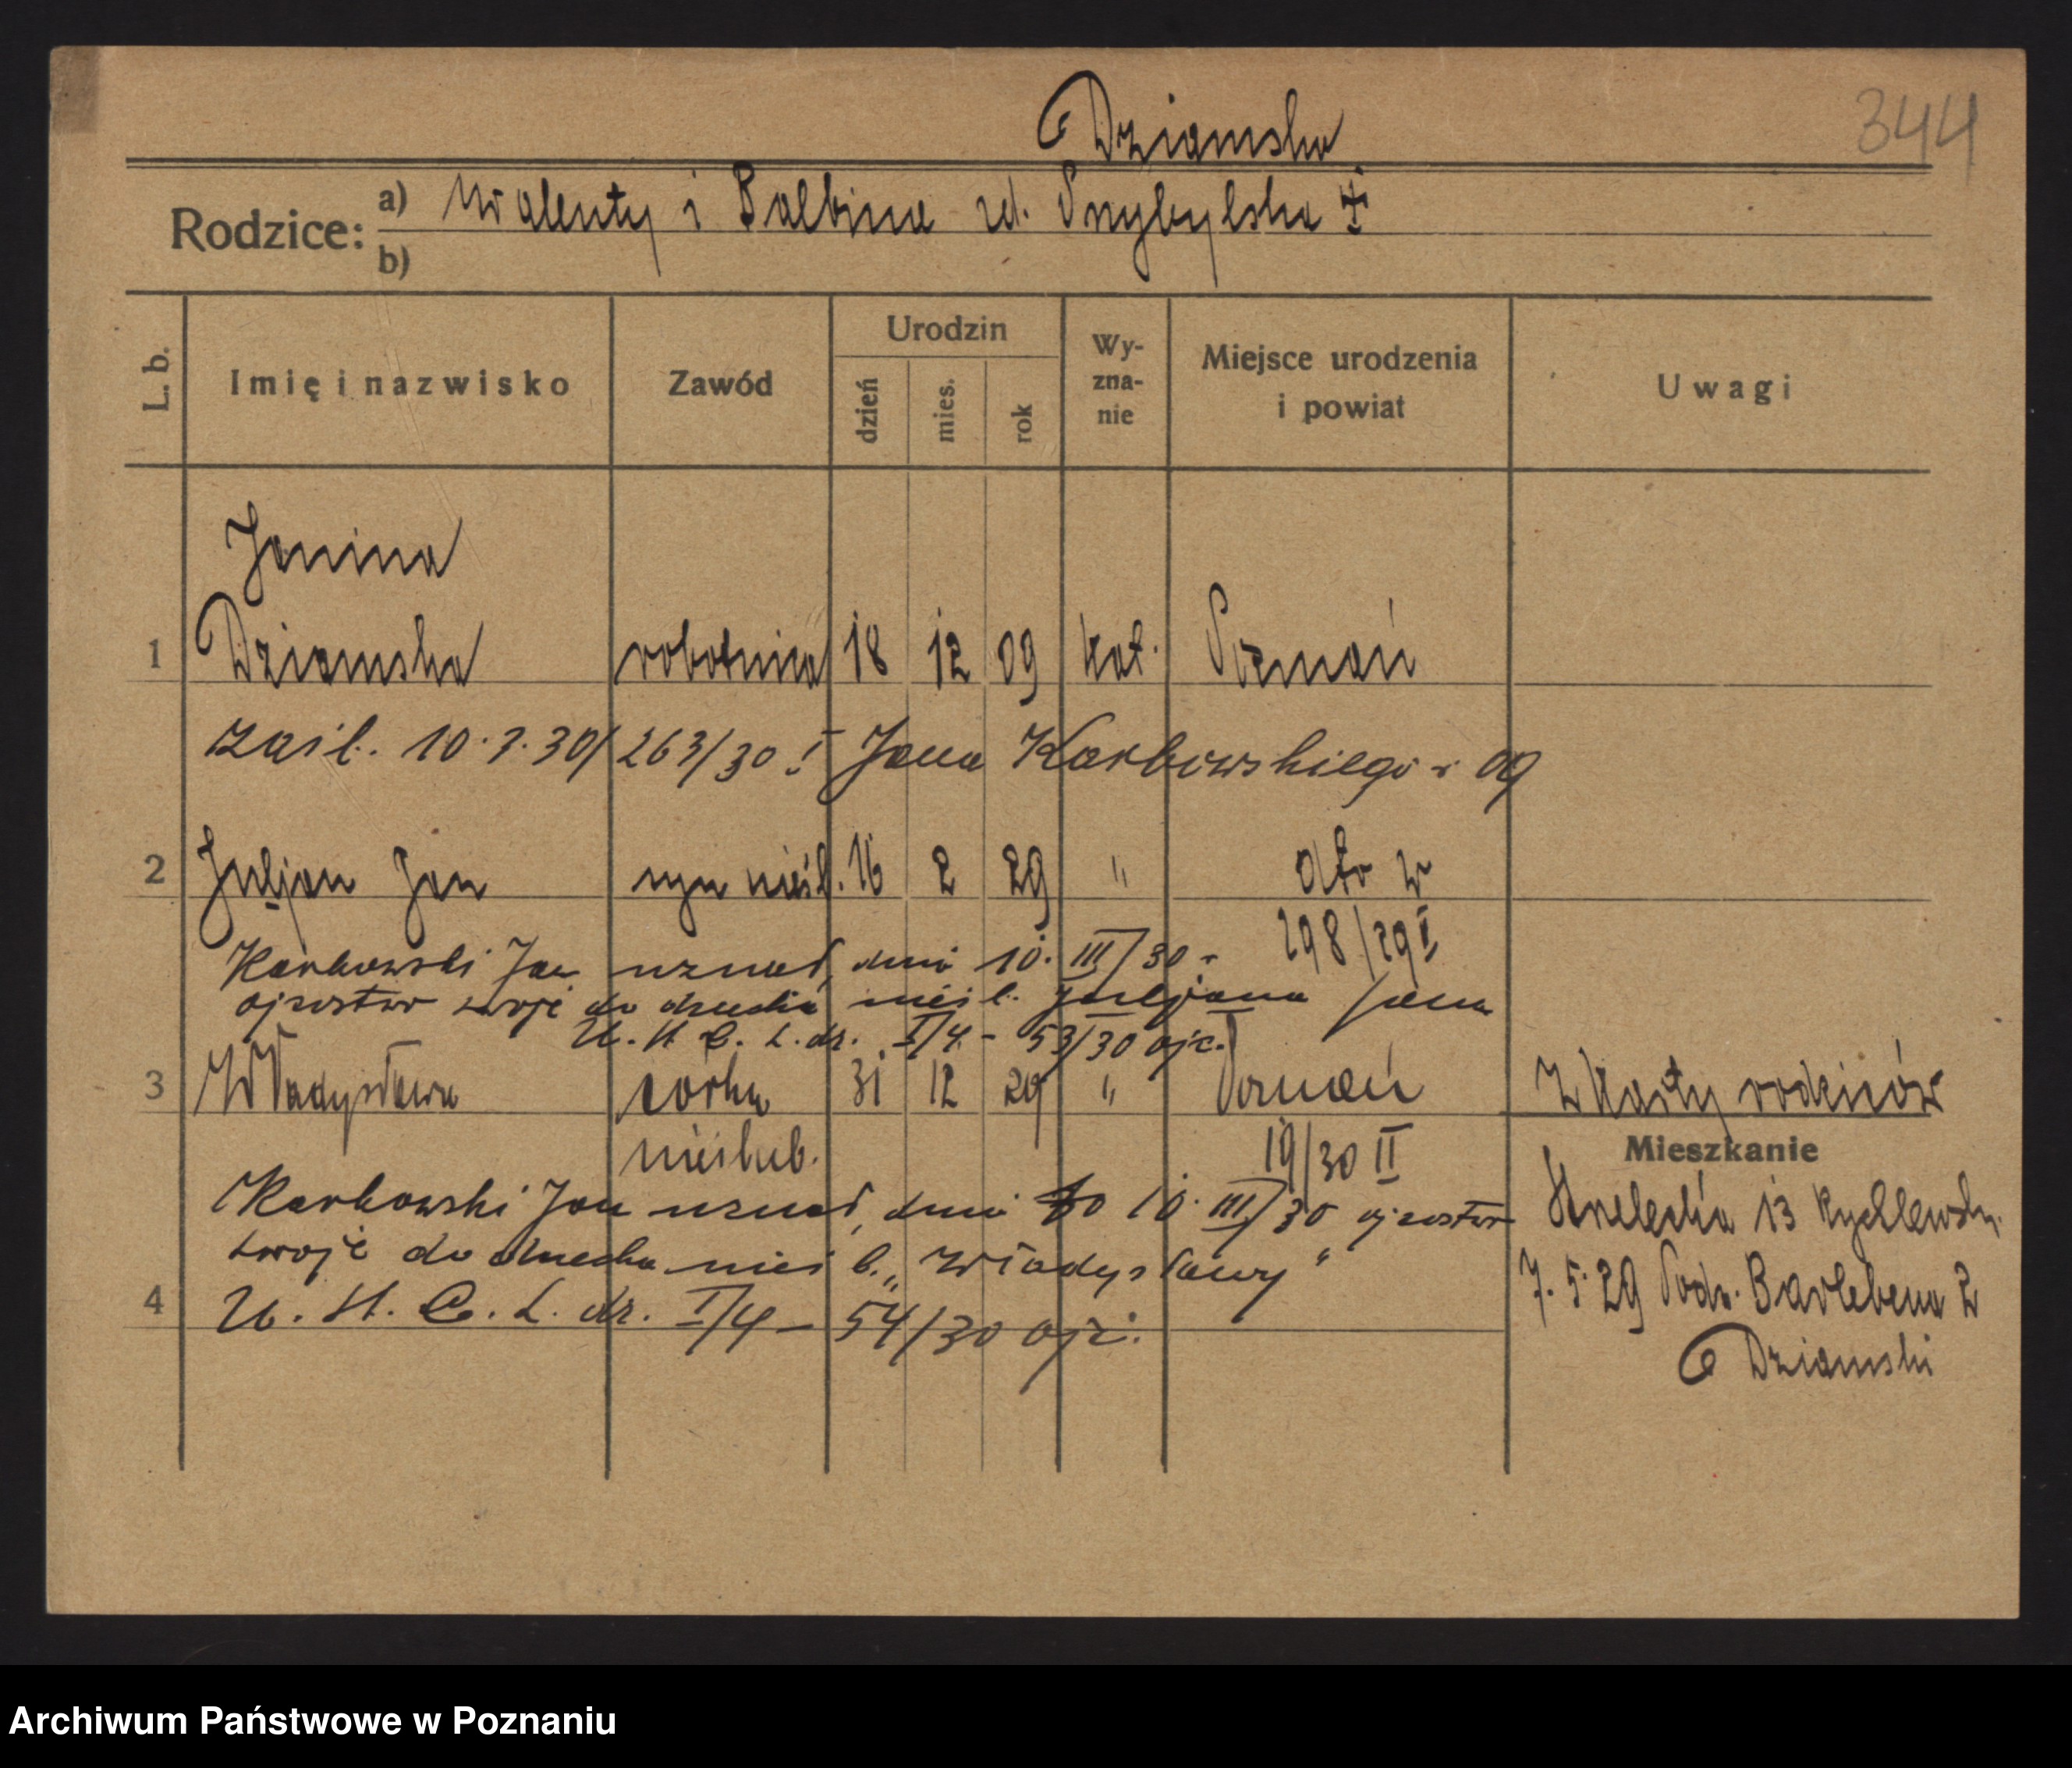 Dziamska
344
Rodzice:
a) Walenty i Balbina zd. Przybylska
b)
L. b.
Imię i nazwisko
Zawód
Urodzin
dzień
mies.
rok
Wy-
zna-
nie
Miejsce urodzenia
i powiat
Uwagi
Janina
1 Dziamska robotnica 18 12 09 kat. Poznań
zaśl. 10.3.30/263/30 I Jana Karbowskiego r 09
2 Juljan Jan syn nieśl. 16 2 29 " oto w
298/29 I
Karbowski Jan uznał, dnia 10. III/30 -
ojcostwo swoje do dziecka nieśl. Juljana Jana
U. S. C. L. dz. I/4 - 53/30 ojc.
3 Władysława córka 31 12 29 " Poznań Z karty rodziców
nieślub. 19/30 II
Mieszkanie
Karbowski Jan uznał, dnia 10. III/30 ojcostwo
swoje do dziecka nieśl. „Władysławy"
4 U. S. C. L. dz. I/4 - 54/30 ojc.
Strzelecka 13 Rychlewsk.
7.5.29 Podr. Barlebena 2
Dziamski
Archiwum Państwowe w Poznaniu